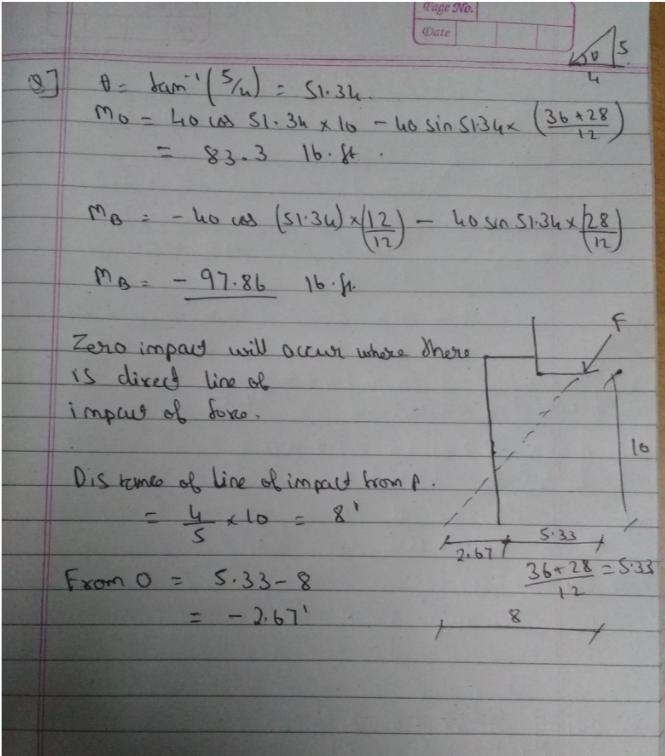 Page No.
Date
5
θ
4
Q] θ = tan⁻¹(5/4) = 51.34.
M₀ = 40 cos 51.34 × 10 - 40 sin 51.34 × (36+28/12)
= 83.3 lb.ft.
M_B = -40 cos (51.34) × (12/12) - 40 sin 51.34 × (28/12)
M_B = -97.86 lb.ft.
Zero impact will occur where there
is direct line of
impact of force.
F
10
Distance of line of impact from P.
= 4/5 × 10 = 8'
2.67
5.33
36+28/12 = 5.33
From O = 5.33-8
= -2.67'
8